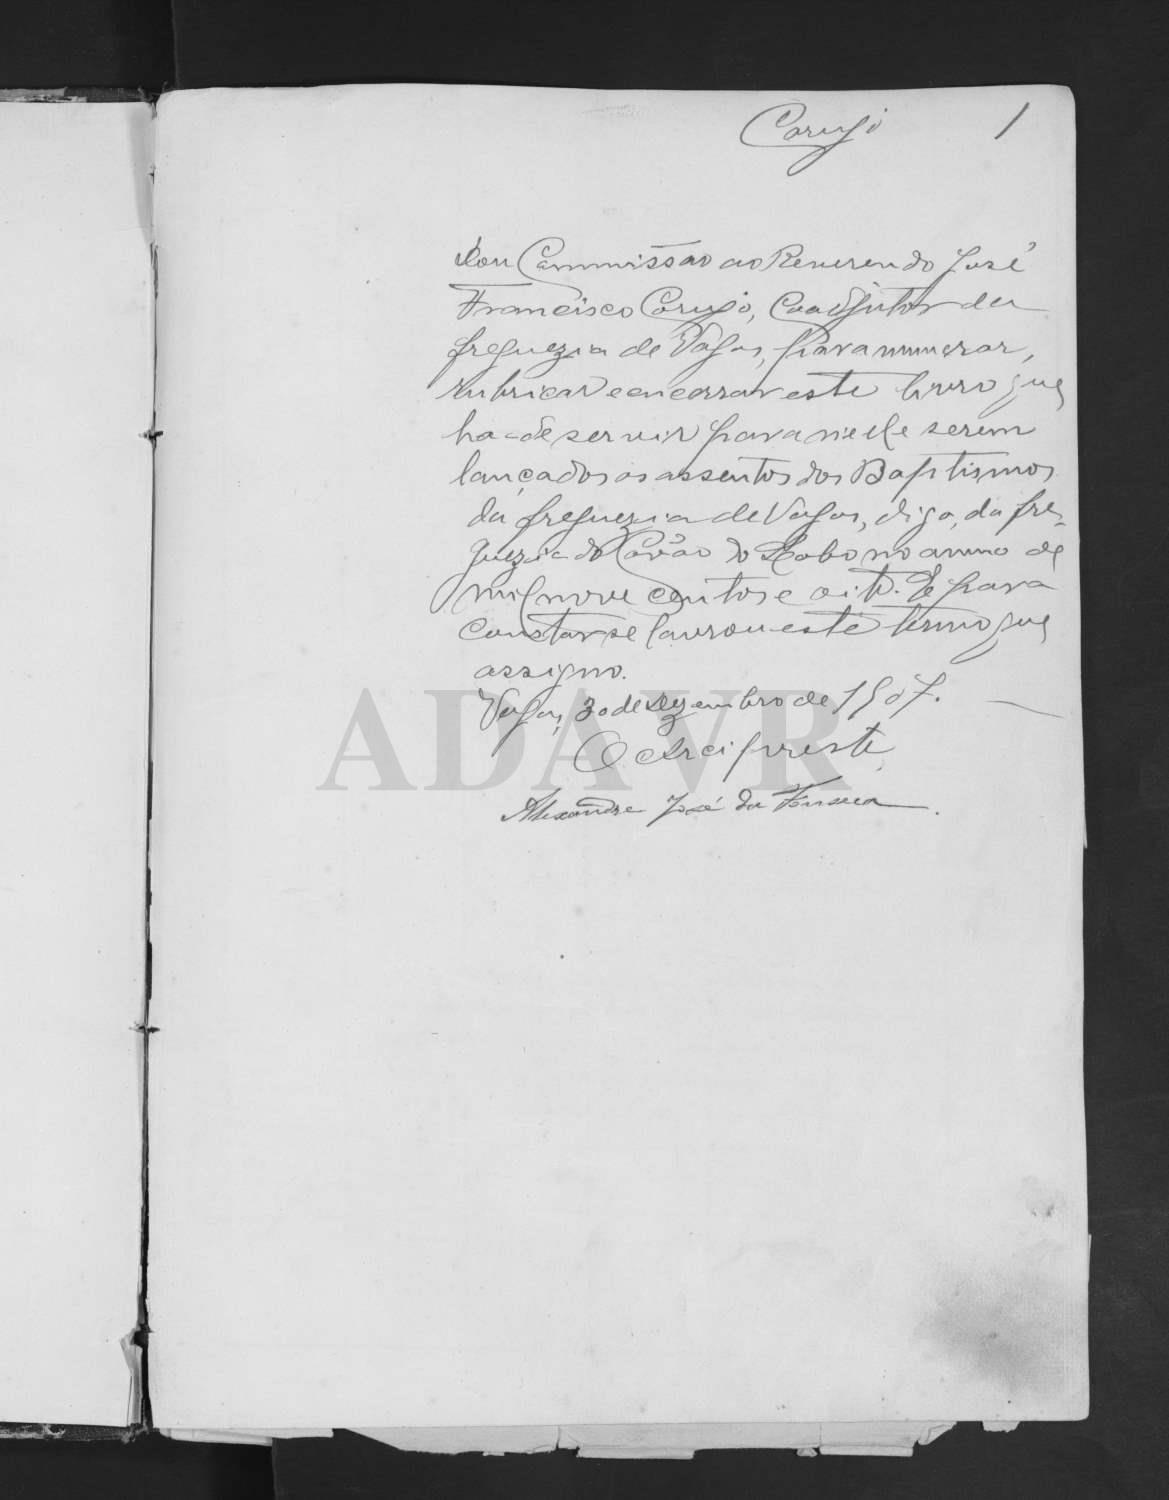 Carujo 1
Dou Commissão ao Reverendo José
Francisco Carujo, Coadjutor da
freguezia de Vagos, para numerar,
rubricar e encerrar este livro que
ha-de servir para n'elle serem
lançados os assentos dos Baptismos
da freguezia de Vagos, digo, da fre-
guezia do Covão do Lobo no anno de
mil nove centos e oito. E para
constar se lavrou este termo que
assigno.
Vagos, 30 de Dezembro de 1907.
O Arcipreste,
Alexandre José da Fonseca.
ADAVR